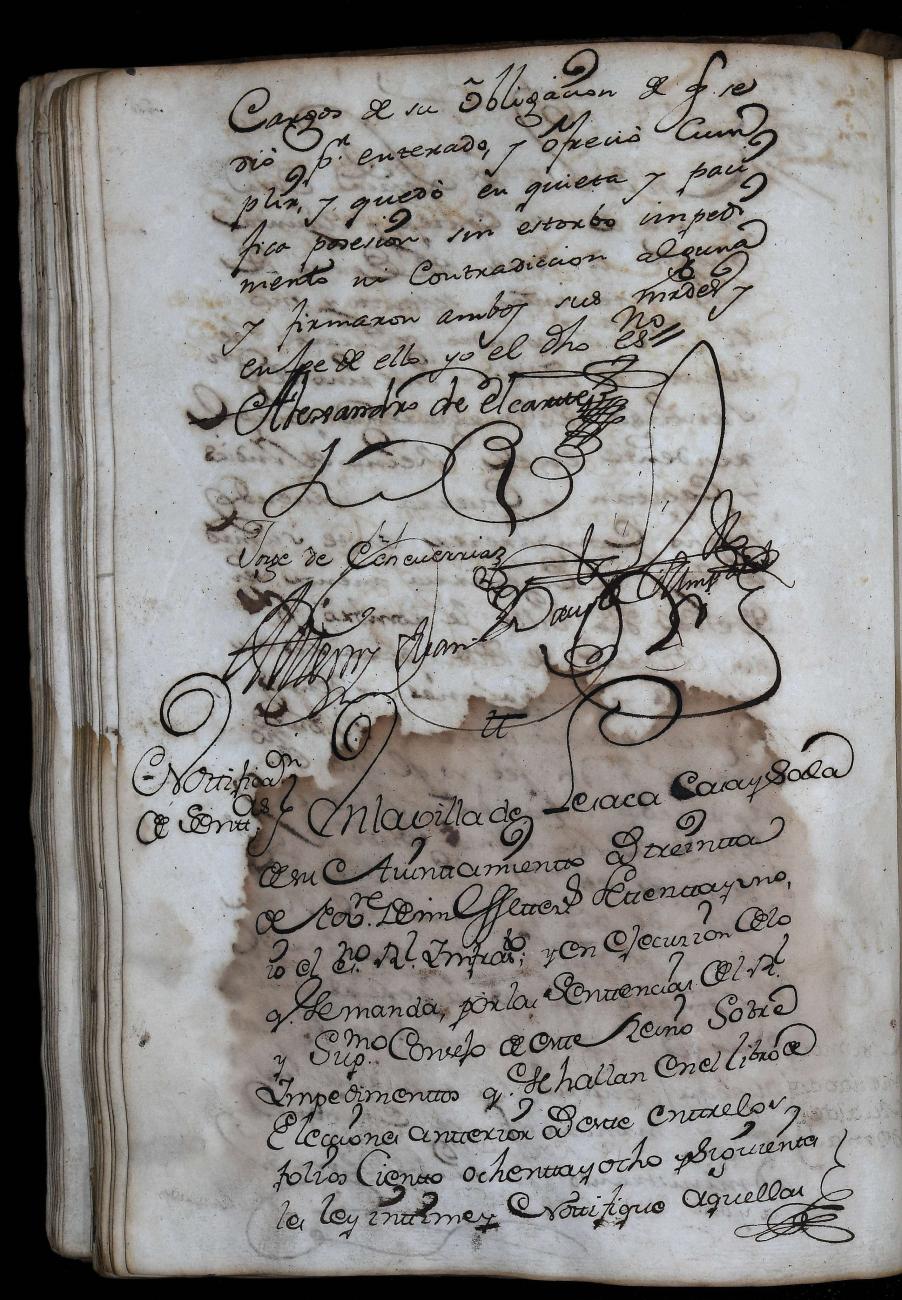 Cargos de su obligacion de q.e se
dió p.r enterado, y ofreció Cum
plir, y quedò en quieta y paci
fica posesion sin estorbo impedi
mento ni Contradicion alguna
y firmaron ambos sus mrdes y
en fee de ello yo el dho es.no
Alexandro de Elcarte
Jorge de Echeverria
Ante mi Juan
Nottificaon
de Sentt.as
En la villa de Lesaca Casa y Sala
de su Ayuntamiento a treintta
de Nov.re de mil settez.s settentta y uno,
io el es.no R.l Infrato. y en ejecucion de lo
q. se manda, por las Senttencias del R.l
y Sup.mo Consejo de este Reino Sobre
Impedimentos q. se hallan en el libro de
Elecciones antterior a este entre los
folios Ciento ochentta y ocho y siguientes
les ley inttime y Nottifique aquellas